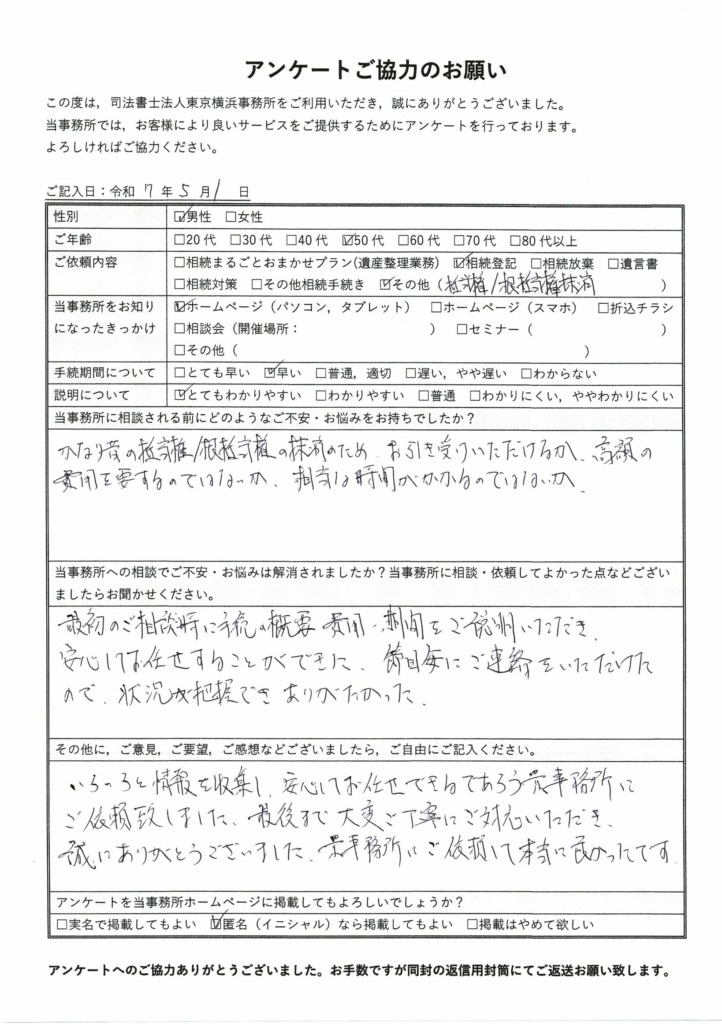 アンケートご協力のお願い
この度は，司法書士法人東京横浜事務所をご利用いただき，誠にありがとうございました。
当事務所では，お客様により良いサービスをご提供するためにアンケートを行っております。
よろしければご協力ください。
ご記入日：令和 7 年 5 月 1 日
性別 ☑男性 □女性
ご年齢 □20代 □30代 □40代 ☑50代 □60代 □70代 □80代以上
ご依頼内容 □相続まるごとおまかせプラン(遺産整理業務) ☑相続登記 □相続放棄 □遺言書
□相続対策 □その他相続手続き ☑その他（抵当権/根抵当権抹消）
当事務所をお知り ☑ホームページ（パソコン，タブレット） □ホームページ（スマホ） □折込チラシ
になったきっかけ □相談会（開催場所： ） □セミナー（ ）
□その他（ ）
手続期間について □とても早い ☑早い □普通，適切 □遅い，やや遅い □わからない
説明について ☑とてもわかりやすい □わかりやすい □普通 □わかりにくい，ややわかりにくい
当事務所に相談される前にどのようなご不安・お悩みをお持ちでしたか？
かなり昔の抵当権/根抵当権の抹消のため、お引き受けいただけるか、高額の
費用を要するのではないか、相当な時間がかかるのではないか
当事務所への相談でご不安・お悩みは解消されましたか？当事務所に相談・依頼してよかった点などござい
ましたらお聞かせください。
最初のご相談時に手続の概要 費用・期間をご説明いただき、
安心してお任せすることができた、節目毎にご連絡をいただけた
ので、状況が把握でき ありがたかった。
その他に，ご意見，ご要望，ご感想などございましたら，ご自由にご記入ください。
いろいろと情報を収集し、安心してお任せできるであろう貴事務所に
ご依頼致しました、最後まで大変ご丁寧にご対応いただき、
誠にありがとうございました、貴事務所にご依頼して本当に良かったです
アンケートを当事務所ホームページに掲載してもよろしいでしょうか？
□実名で掲載してもよい ☑匿名（イニシャル）なら掲載してもよい □掲載はやめて欲しい
アンケートへのご協力ありがとうございました。お手数ですが同封の返信用封筒にてご返送お願い致します。